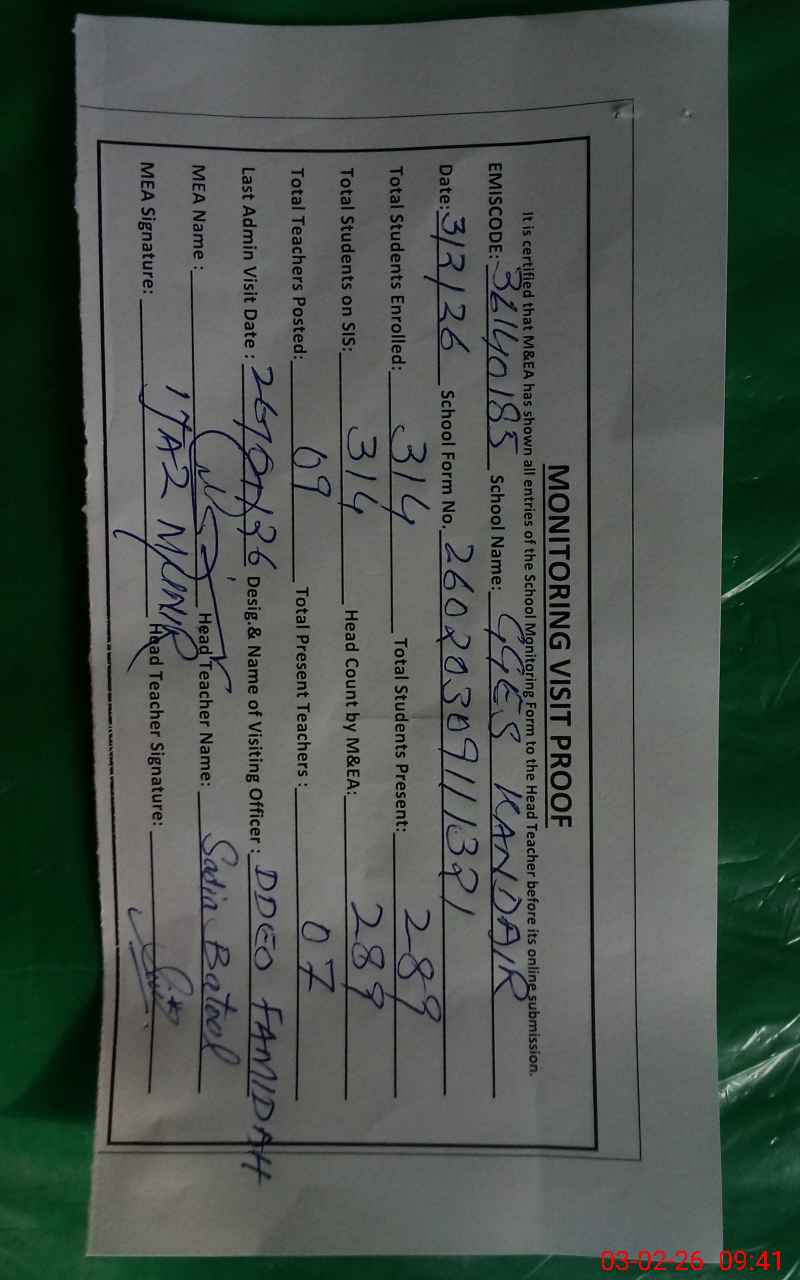 MONITORING VISIT PROOF
It is certified that M&EA has shown all entries of the School Monitoring Form to the Head Teacher before its online submission.
EMISCODE: 36140185 School Name: GGES KANDAIR
Date: 3/2/26 School Form No. 26020309111321
Total Students Enrolled: 314 Total Students Present: 289
Total Students on SIS: 314 Head Count by M&EA: 289
Total Teachers Posted: 09 Total Present Teachers : 07
Last Admin Visit Date : Desig.& Name of Visiting Officer : DDEO FAMIDAH
MEA Name : Head Teacher Name: Batool
MEA Signature: Head Teacher Signature:
03-02-26 09:41